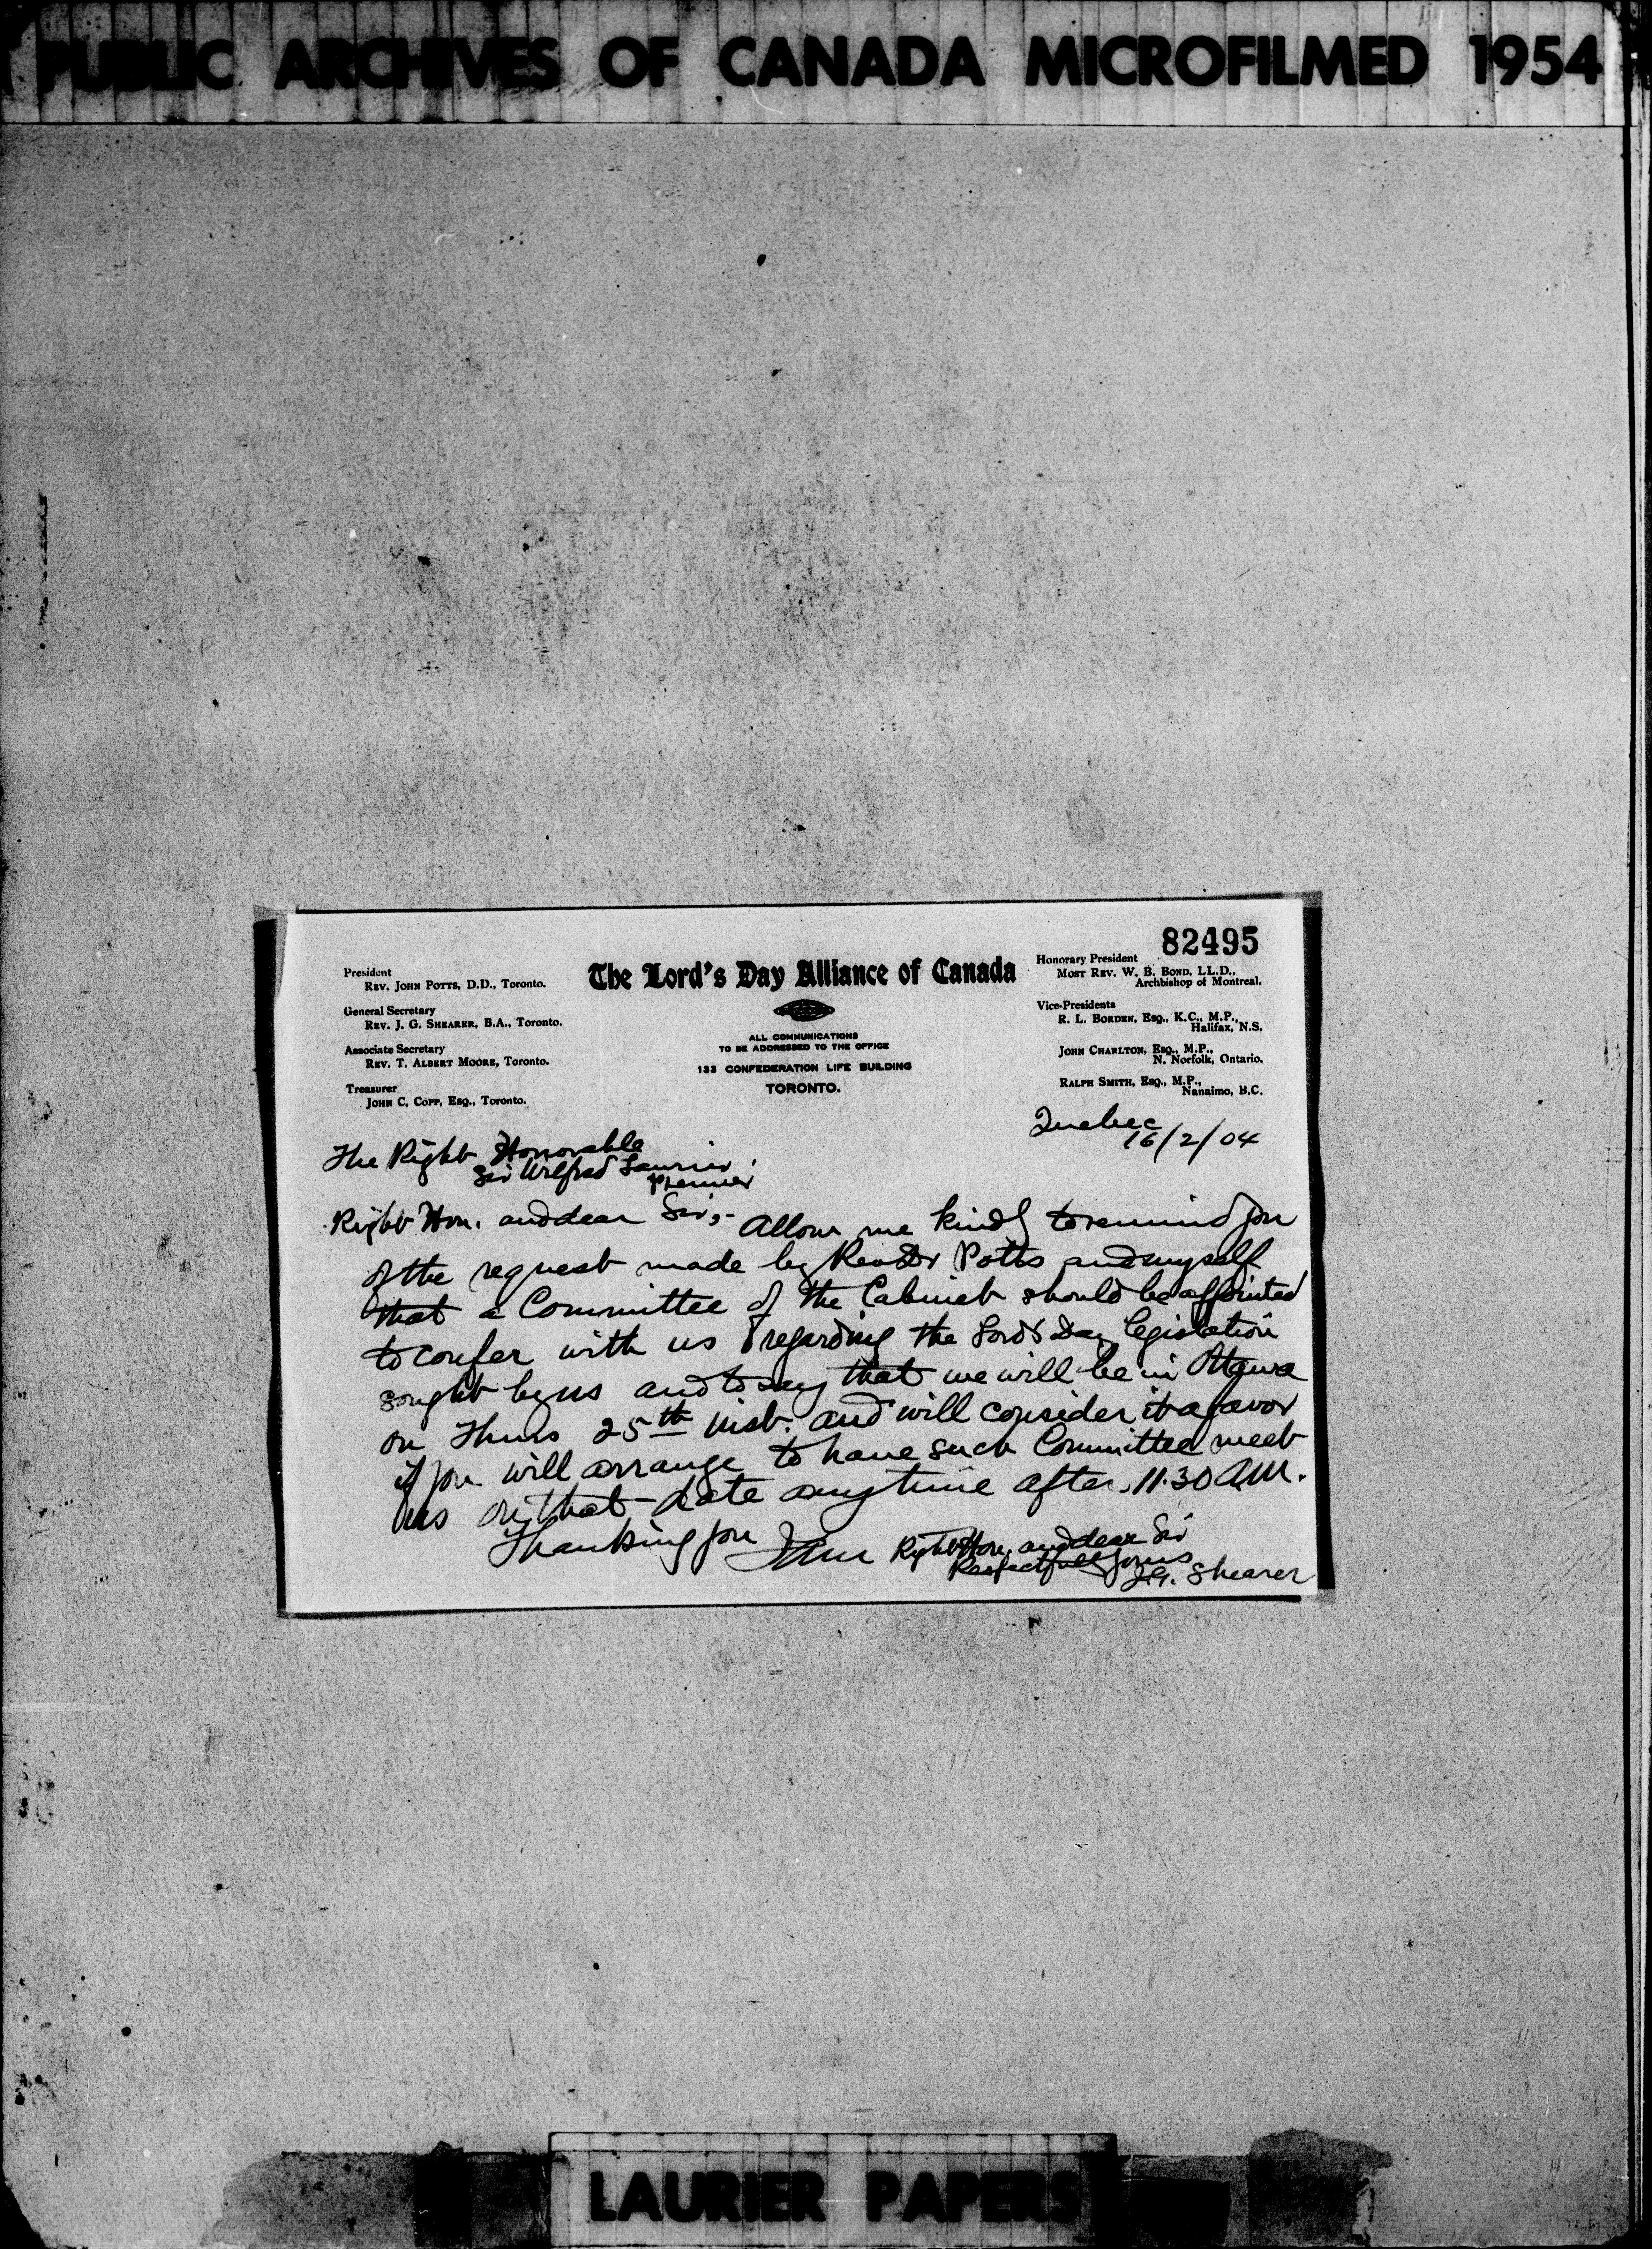 PUBLIC ARCHIVES OF CANADA MICROFILMED 1954
82495
President
REV. JOHN POTTS, D.D., Toronto.
General Secretary
REV. J. G. SHEARER, B.A., Toronto.
Associate Secretary
REV. T. ALBERT MOORE, Toronto.
Treasurer
JOHN C. COPP, ESQ., Toronto.
The Lord's Day Alliance of Canada
ALL COMMUNICATIONS
TO BE ADDRESSED TO THE OFFICE
133 CONFEDERATION LIFE BUILDING
TORONTO.
Honorary President
MOST REV. W. B. BOND, LL.D.,
Archbishop of Montreal.
Vice-Presidents
R. L. BORDEN, ESQ., K.C., M.P.,
Halifax, N.S.
JOHN CHARLTON, ESQ., M.P.,
N. Norfolk, Ontario.
RALPH SMITH, ESQ., M.P.,
Nanaimo, B.C.
Quebec
16/2/04
The Right Honorable
Sir Wilfred Laurier,
Premier
Right Hon. and dear Sir,-
Allow me kindly to remind you
of the request made by Rev Dr Potts and myself
that a Committee of the Cabinet should be appointed
to confer with us regarding the Lord's Day legislation
sought by us and to say that we will be in Ottawa
on Thurs 25th inst. and will consider it a favor
if you will arrange to have such Committee meet
us on that date anytime after 11.30 A.M.
Thanking you I am Right Hon. and dear Sir
Respectfully yours
J.G. Shearer
LAURIER PAPERS